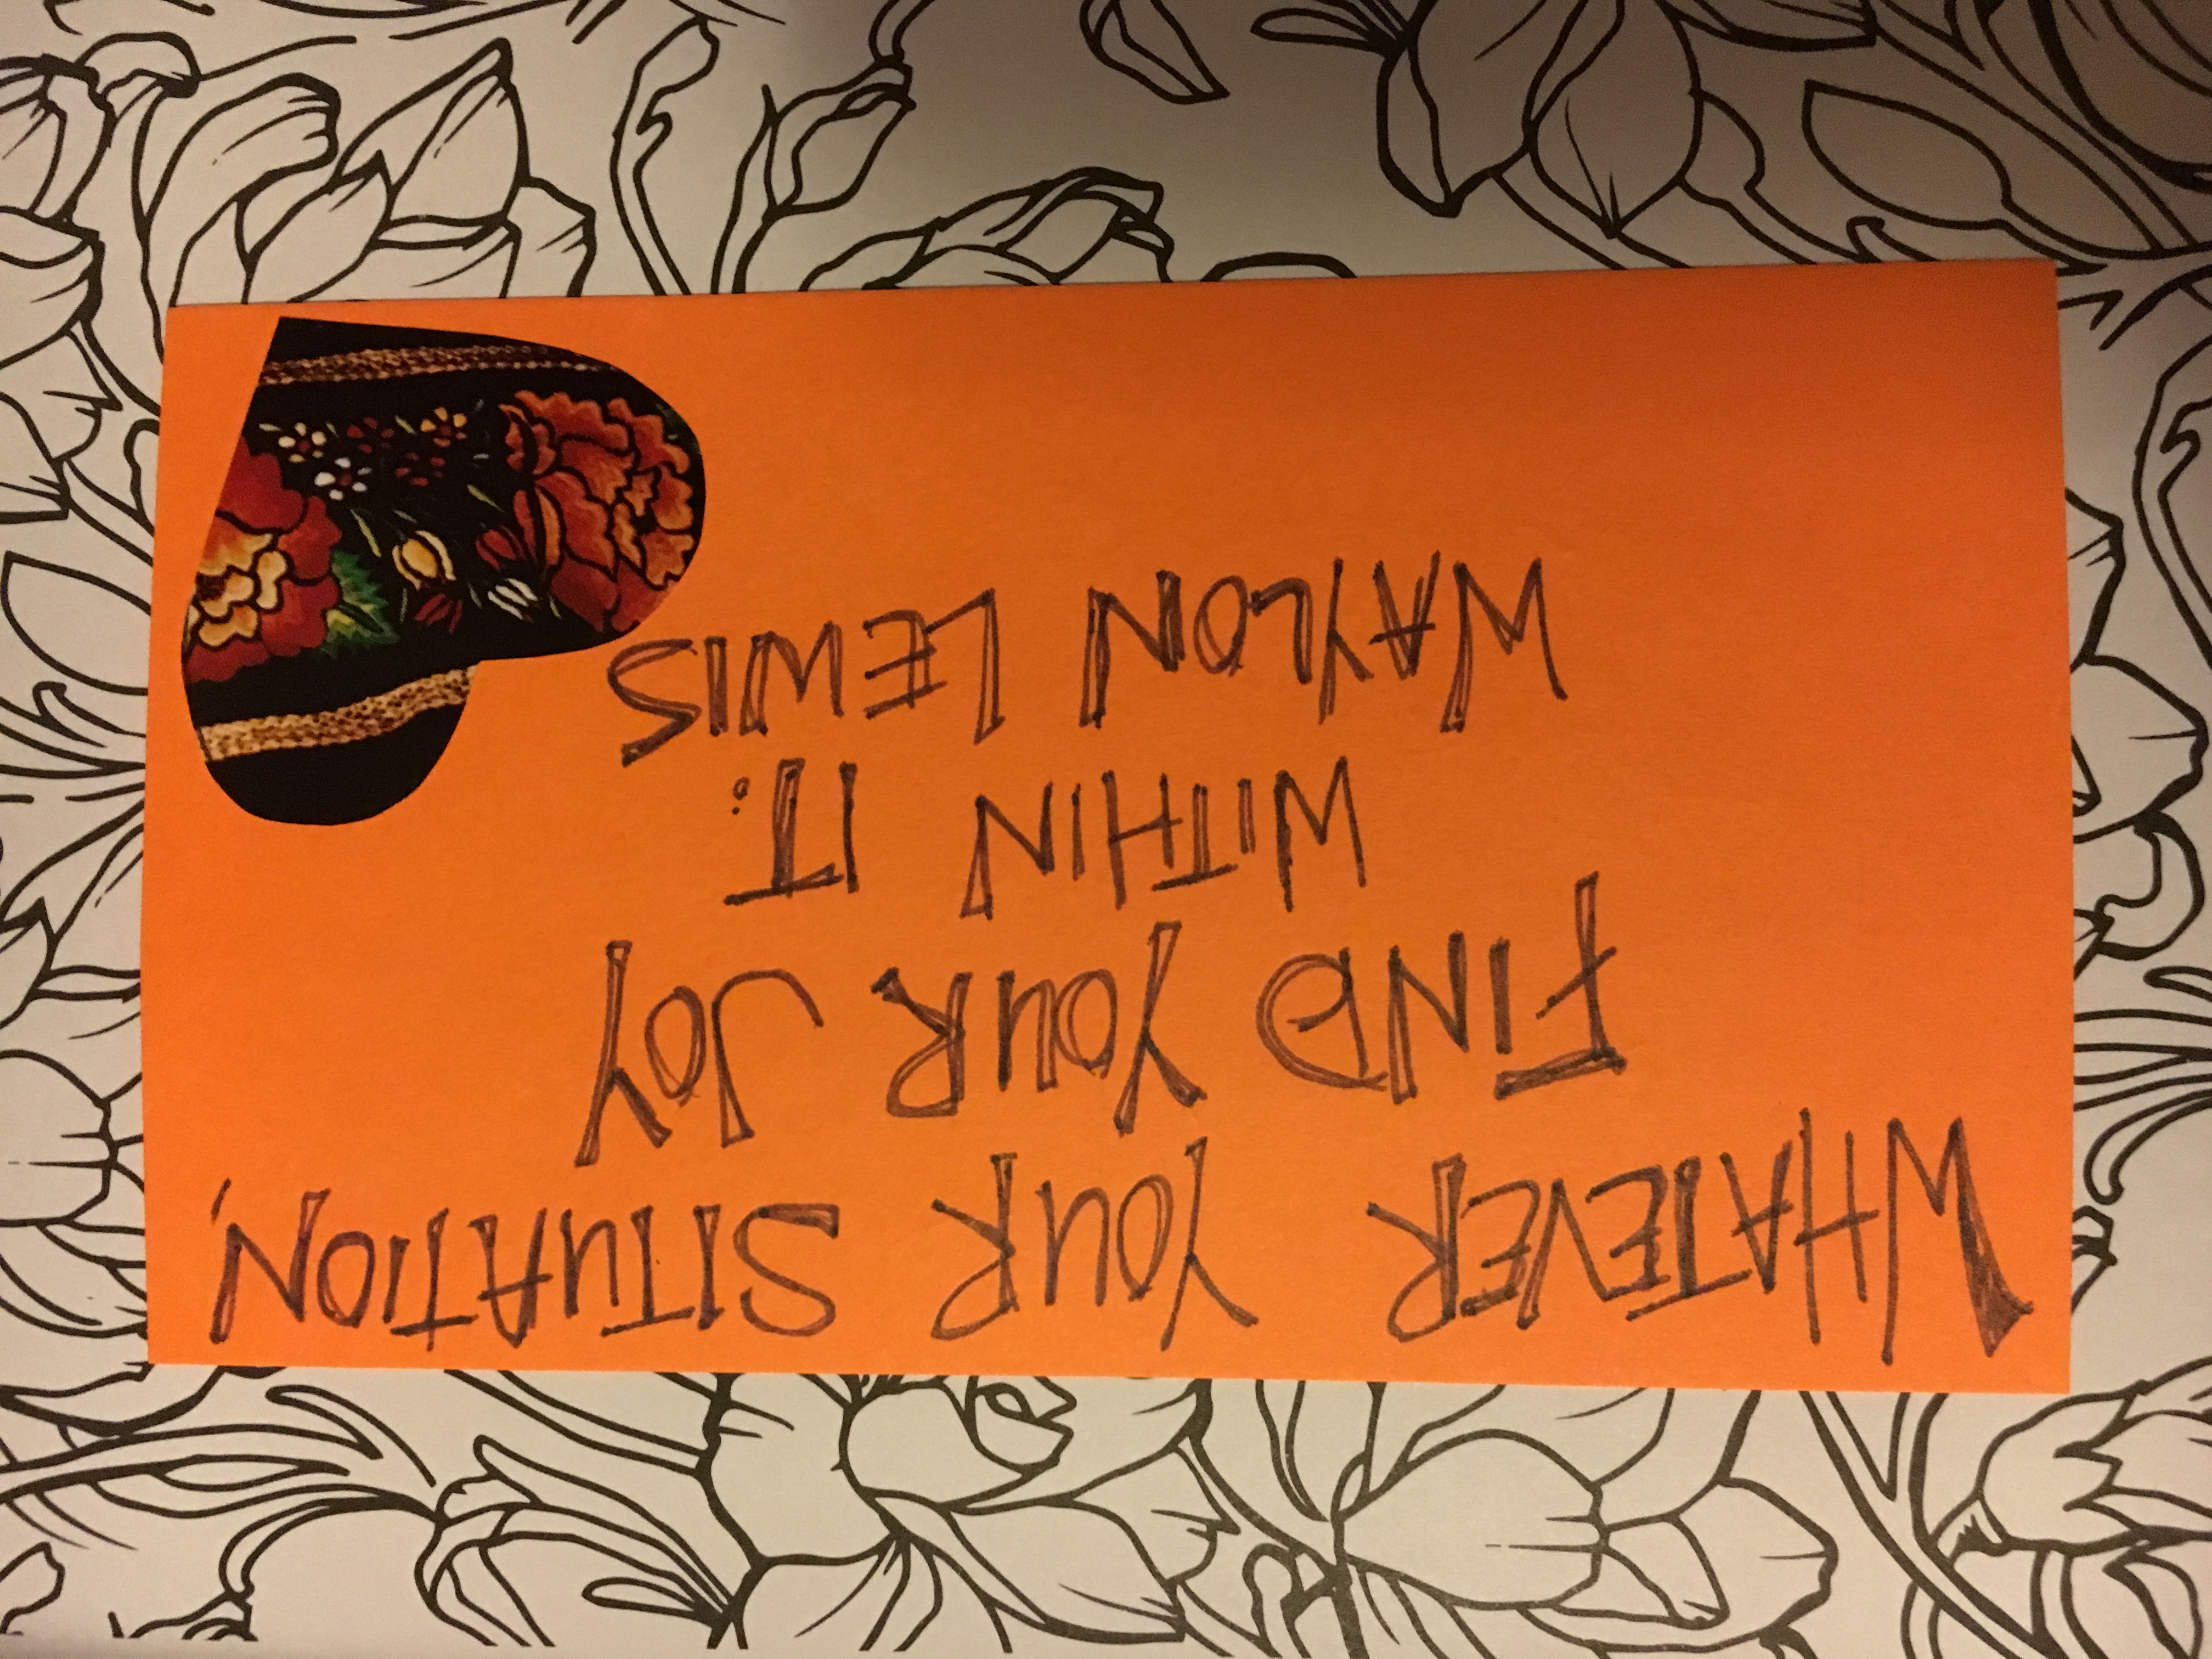 WHATEVER YOUR SITUATION,
FIND YOUR JOY
WITHIN IT.
WAYLON LEWIS